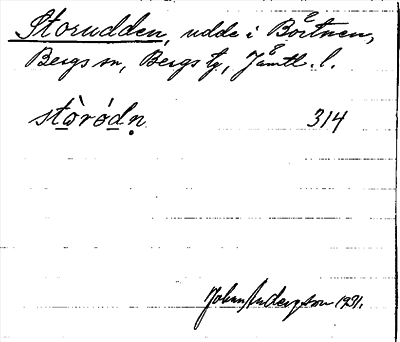 Storudden, udde i Börtnen,
Bergs sn, Bergs tg, Jämtl. l.
stòròdṇ 314
Johan Anderson 1931.